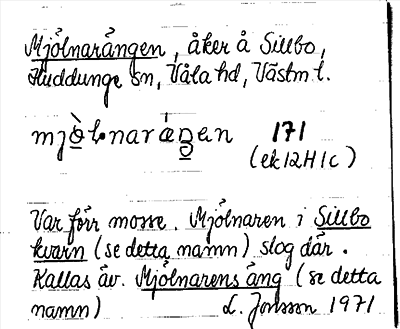 Mjölnarängen, åker å Sillbo,
Huddunge sn, Våla hd, Västm l.
mjö̀lnaráŋen 171
(ek 12H1c)
Var förr mosse. Mjölnaren i Sillbo
kvarn (se detta namn) slog där.
Kallas äv. Mjölnarens äng (se detta
namn) L. Jonsson 1971